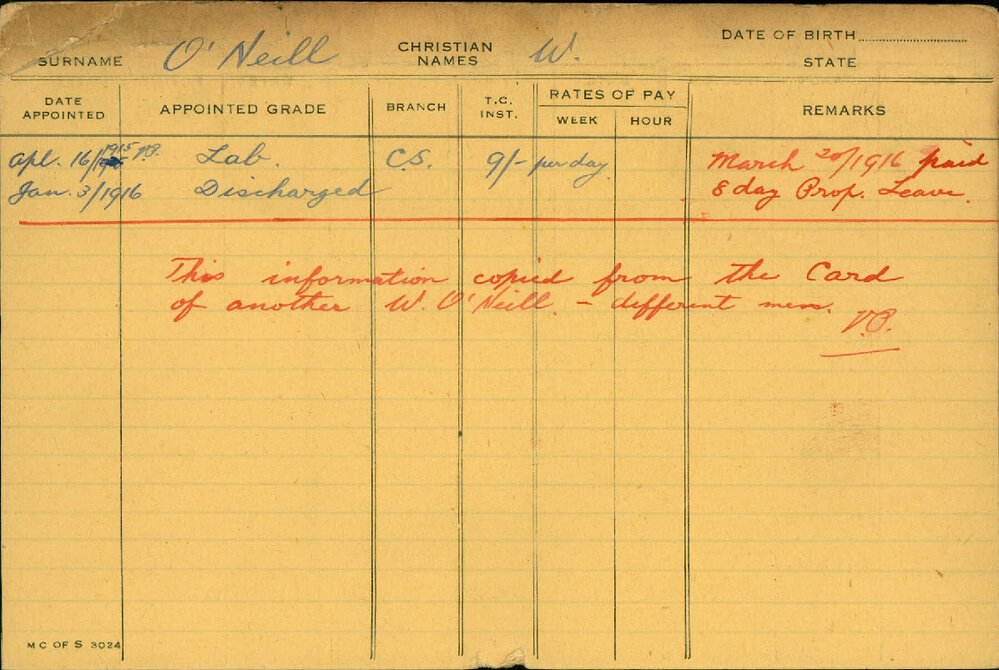 SURNAME O'Neill CHRISTIAN NAMES W. DATE OF BIRTH
STATE
DATE APPOINTED APPOINTED GRADE BRANCH T.C. INST. RATES OF PAY WEEK HOUR REMARKS
Apl. 16/1915 V.P. Lab. C.S. 9/- per day. March 20/1916 paid
Jan. 3/1916 Discharged 8 day Prop. Leave.
This information copied from the Card
of another W. O'Neill. - different men.
V.P.
M C OF S 3024